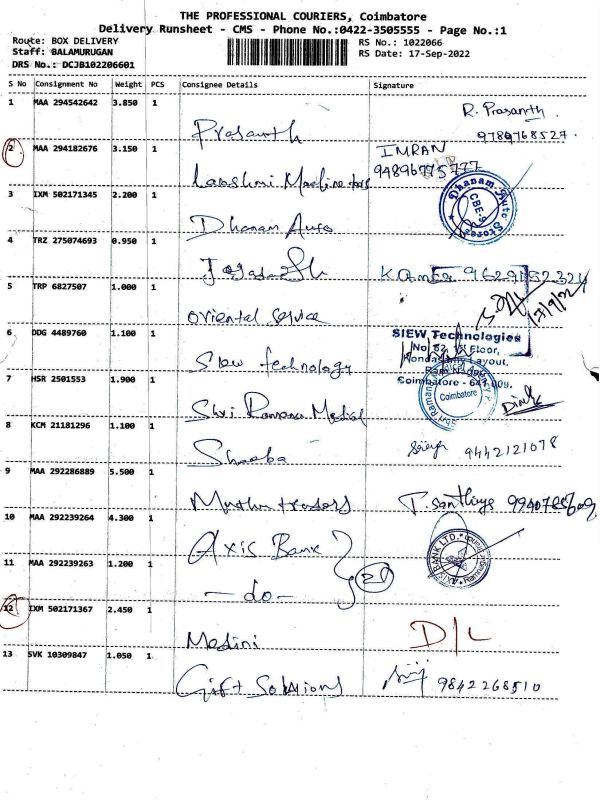 THE PROFESSIONAL COURIERS, Coimbatore
Delivery Runsheet - CMS - Phone No.:0422-3505555 - Page No.:1
Route: BOX DELIVERY RS No.: 1022066
Staff: BALAMURUGAN RS Date: 17-Sep-2022
DRS No.: DCJB102206601
S No Consignment No Weight PCS Consignee Details Signature
1 MAA 294542642 3.850 1
R. Prasanth
Prasanth 9789768527
2 MAA 294182676 3.150 1 IMRAN
9489675777
Laxshmi Machine tools
3 IXM 502171345 2.200 1
Dhanam Auto Stores CBE-9
Dhanam Auro
4 TRZ 275074693 0.950 1
5 TRP 6827507 1.000 1
17/9/22
Oriental Service
6 DDG 4489760 1.100 1 SIEW Technologies
Floor,
Layout,
Siew technology
Coimbatore - 641 009.
7 HSR 2501553 1.900 1
Coimbatore
Shri Ramana Medical
8 KCM 21181296 1.100 1
9442121078
Sheeba
9 MAA 292286889 5.500 1
Muthu traders T. Santhiya
10 MAA 292239264 4.300 1
Axis Bank
AXIS BANK LTD.
11 MAA 292239263 1.200 1
- do -
12 IXM 502171367 2.450 1
D/L
Medini
13 SVK 10309847 1.050 1
9842268510
Gift Solutions